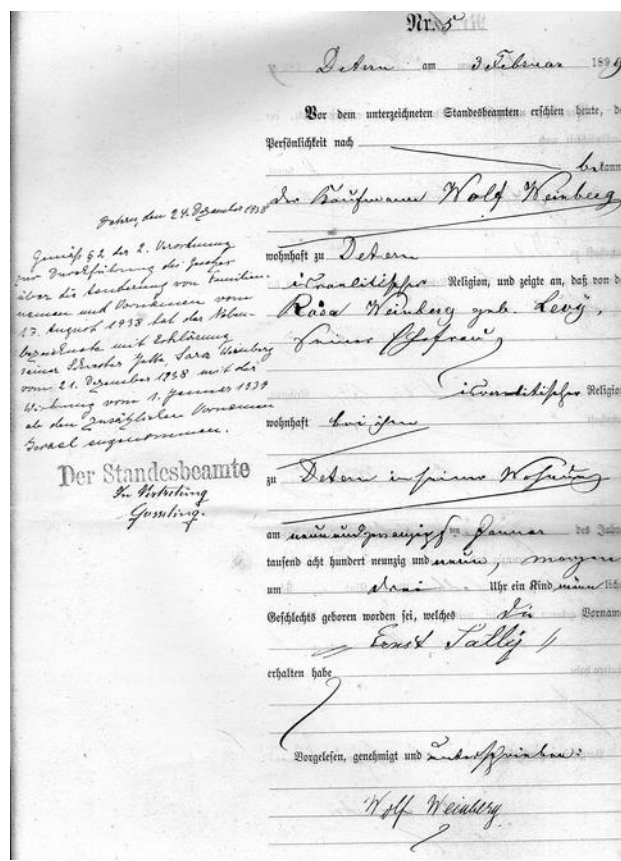 Nr. 5
Detern am 3 Februar 1899
Vor dem unterzeichneten Standesbeamten erschien heute, de
Persönlichkeit nach
bekann
der Kaufmann Wolf Weinberg
wohnhaft zu Detern
israelitischer Religion, und zeigte an, daß von de
Rosa Weinberg geb. Levy,
seiner Ehefrau
israelitischer Religion
wohnhaft bei ihm
zu Detern in seiner Wohnung
am neunundzwanzigsten Januar des Jahre
tausend acht hundert neunzig und neun, morgens
um drei Uhr ein Kind männlich
Geschlechts geboren worden sei, welches die Vorname
Ernst Sally
erhalten habe
Vorgelesen, genehmigt und unterschrieben:
Wolf Weinberg
den 24. Dezember 1938
Gemäß § 2 der 2. Verordnung
zur Durchführung des Gesetzes
über die Aenderung von Familien-
namen und Vornamen vom
17. August 1938 hat der Neben-
bezeichnete mit Erklärung
seiner Schwester Sara Weinberg
vom 21. Dezember 1938 mit der
Wirkung vom 1. Januar 1939
ab den zusätzlichen Vornamen
Israel angenommen.
Der Standesbeamte
In Vertretung